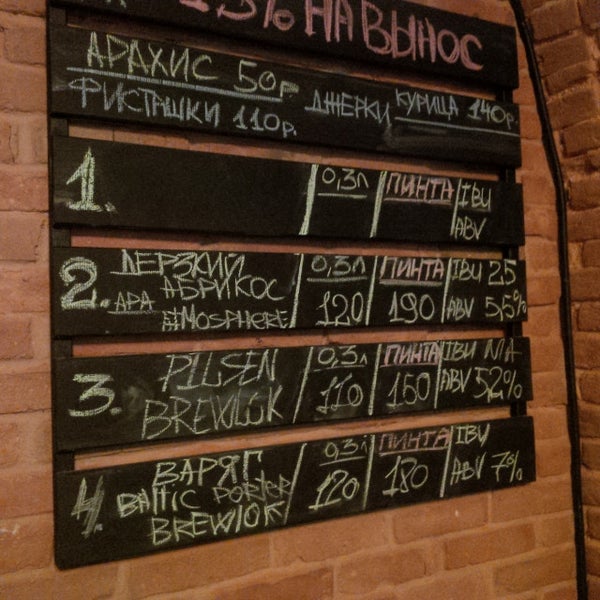 15% НА ВЫНОС
АРАХИС 50р
ФИСТАШКИ 110р. ДЖЕРКИ КУРИЦА 140р.
1. 0,3л ПИНТА IBU
ABV
2. ДЕРЗКИЙ 0,3л ПИНТА IBU 25
АБРИКОС 120 190 ABV 5,5%
APA
ATMOSPHERE
3. PILSEN 0,3л ПИНТА IBU NA
BREWLOK 110 150 ABV 5,2%
4. ВАРЯГ 0,3л ПИНТА IBU
BALTIC PORTER 120 180 ABV 7%
BREWLOK